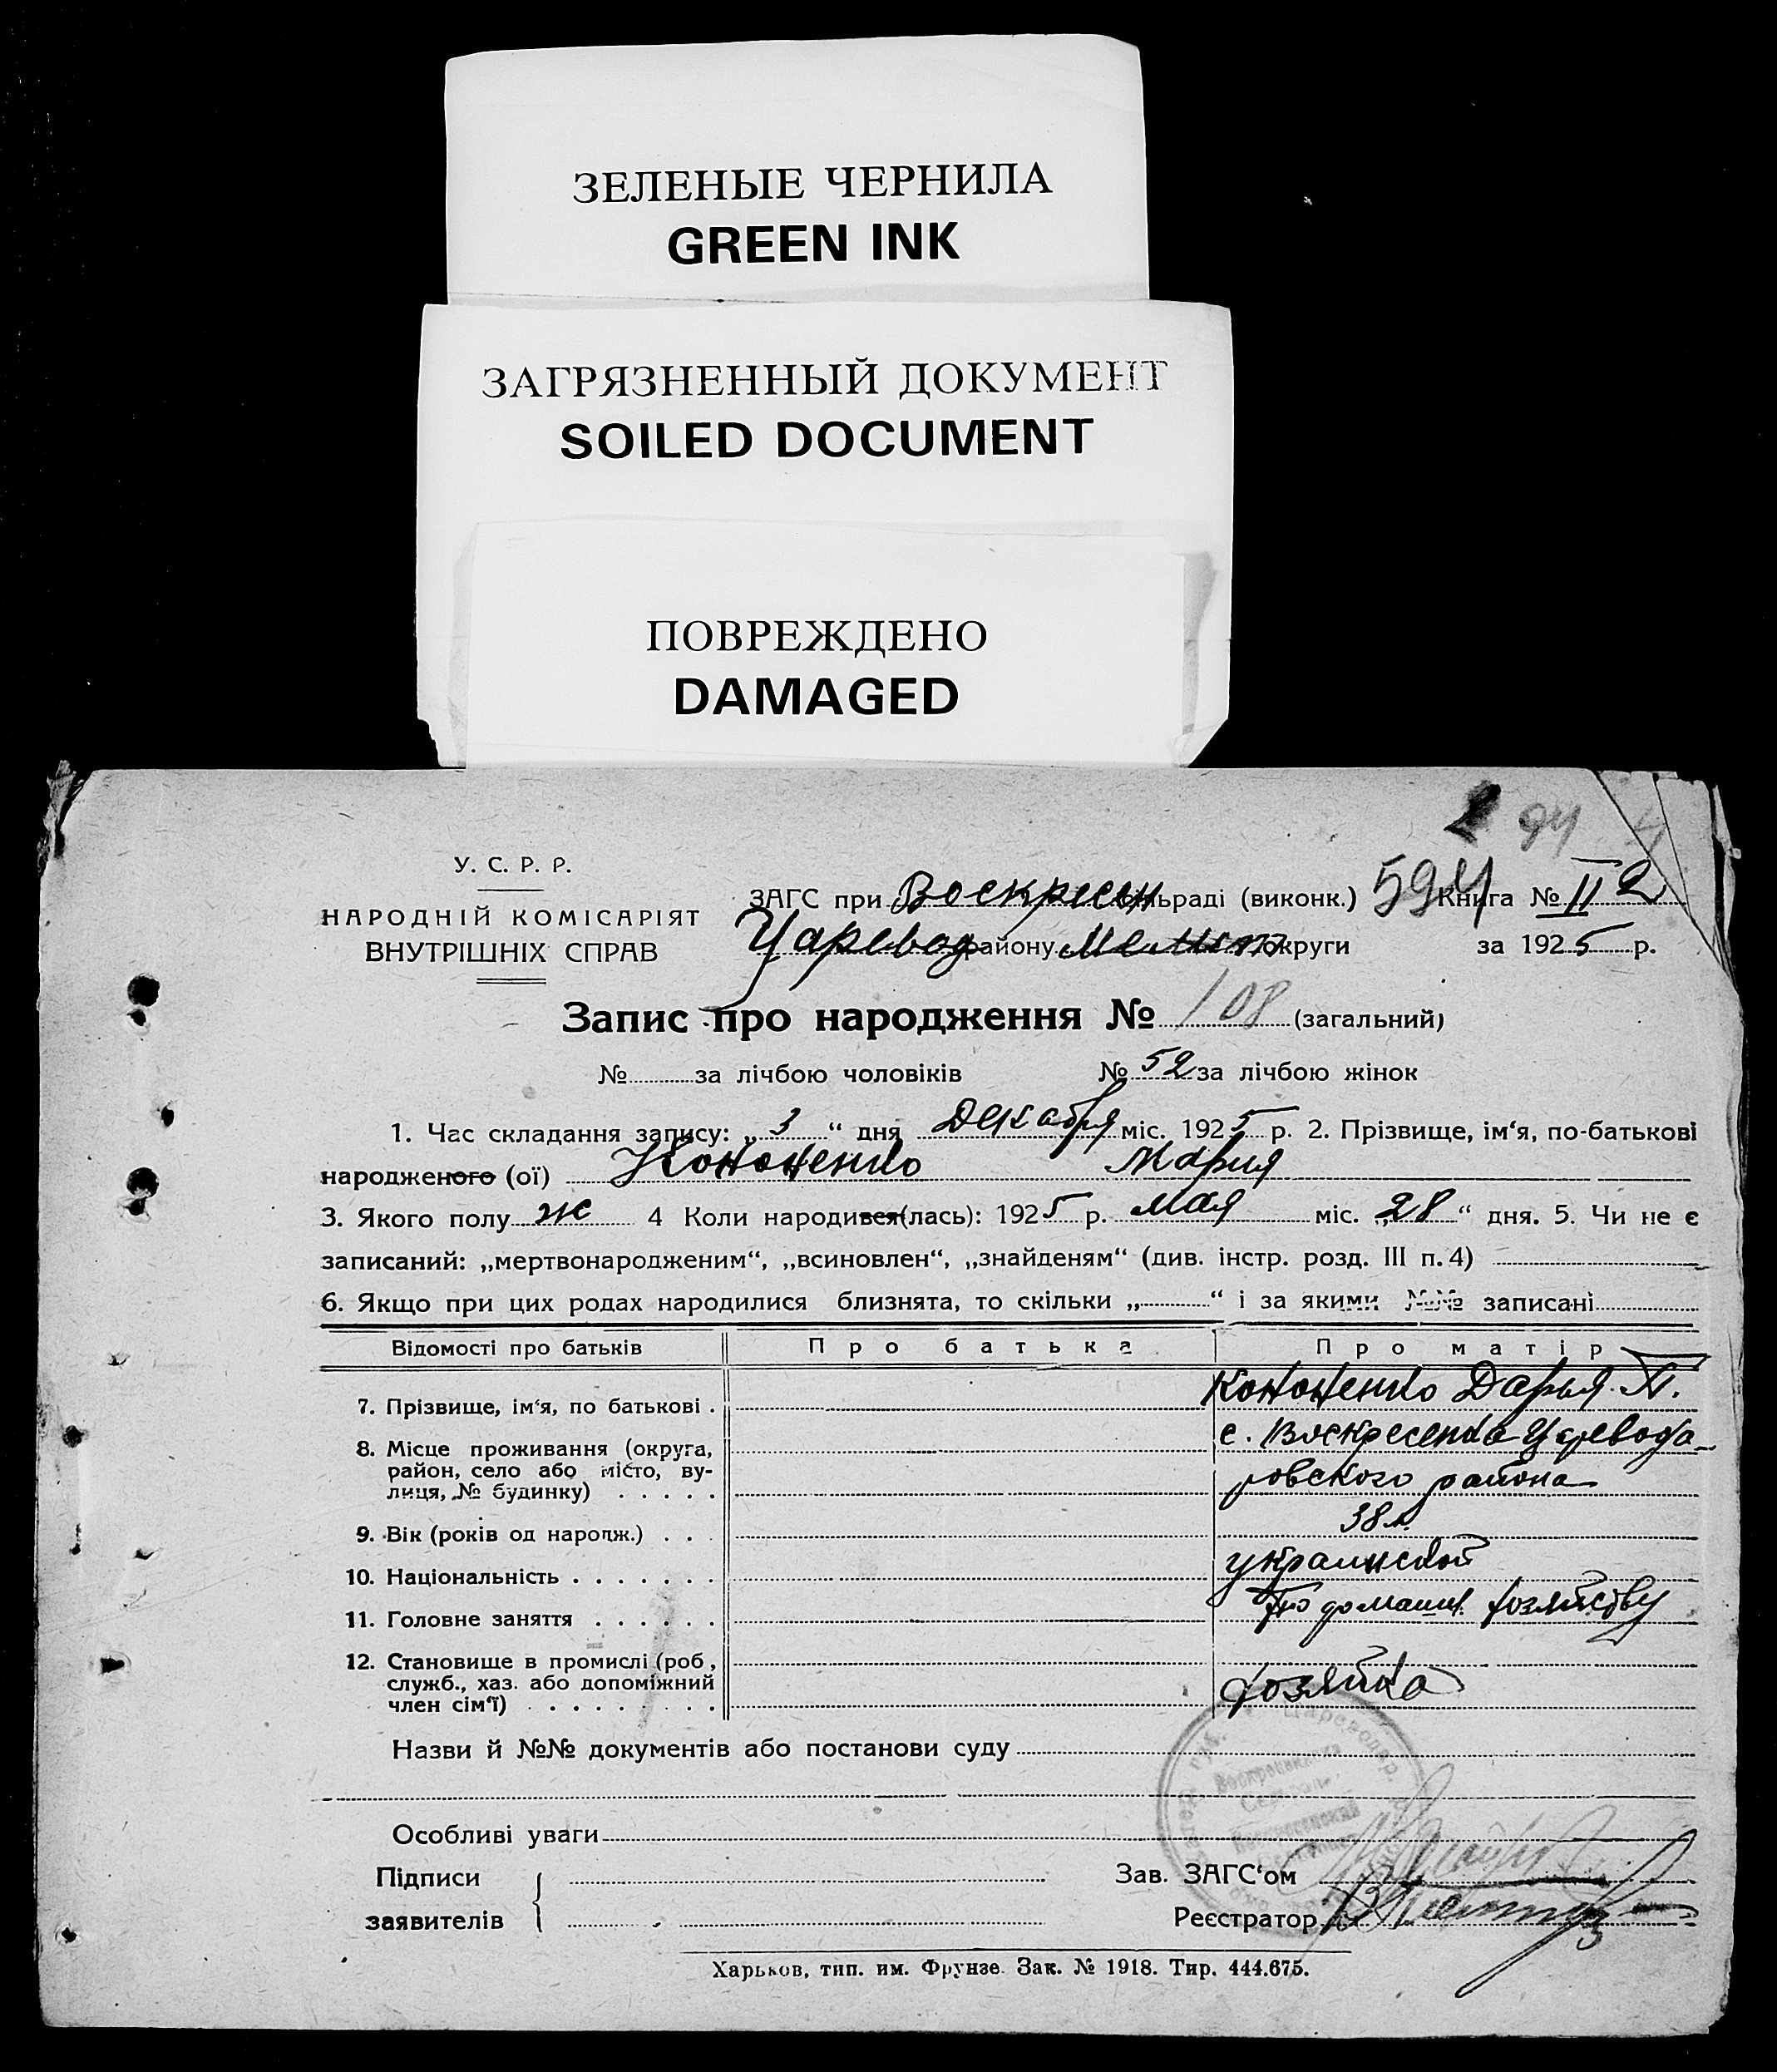 ЗЕЛЕНЫЕ ЧЕРНИЛА
GREEN INK
ЗАГРЯЗНЕННЫЙ ДОКУМЕНТ
SOILED DOCUMENT
ПОВРЕЖДЕНО
DAMAGED
94
У. С. Р. Р.
НАРОДНІЙ КОМІСАРІЯТ
ВНУТРІШНІХ СПРАВ
ЗАГС при Воскресен сільраді (виконк.) 594 Книга № II 2
Царевод району Мелит округи за 1925 р.
Запис про народження № 108 (загальний)
№ за лічбою чоловіків № 52 за лічбою жінок
1. Час складання запису: „3“ дня Декабря міс. 1925 р. 2. Прізвище, ім‘я, по-батькові
народженого (ої) Кононенко Мария
3. Якого полу ж 4 Коли народився(лась): 1925 р. мая міс. „28“ дня. 5. Чи не є
записаний: „мертвонародженим“, „всиновлен“, „знайденям“ (див. інстр. розд. III п. 4)
6. Якщо при цих родах народилися близнята, то скільки „ “ і за якими №№ записані
Відомості про батьків Про батька Про матір
7. Прізвище, ім‘я, по батькові . Кононенко Дарья П.
8. Місце проживання (округа, с. Воскресенка Царевода-
район, село або місто, ву- ровского района
лиця, № будинку) . . . . .
9. Вік (років од народж.) . . 38 л.
10. Національність . . . . . . . украинской
11. Головне заняття . . . . . . По домашн. хозяйству
12. Становище в промислі (роб.,
служб., хаз. або допоміжний хозяйка
член сім‘ї) . . . . . . . .
Назви й №№ документів або постанови суду
Особливі уваги
Підписи Зав. ЗАГС‘ом
заявителів Реєстратор
Харьков, тип. им. Фрунзе. Зак. № 1918. Тир. 444.675.